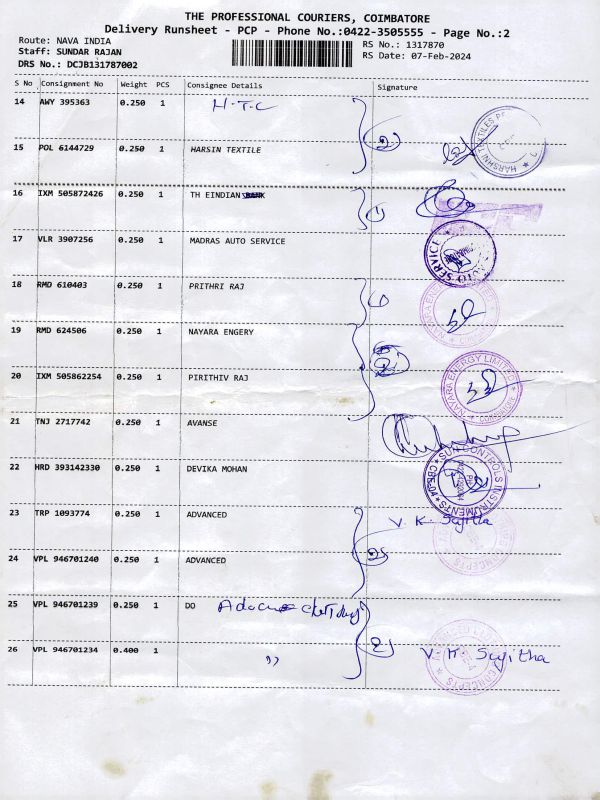 THE PROFESSIONAL COURIERS, COIMBATORE
Delivery Runsheet - PCP - Phone No.:0422-3505555 - Page No.:2
Route: NAVA INDIA
RS No.: 1317870
Staff: SUNDAR RAJAN
RS Date: 07-Feb-2024
DRS No.: DCJB131787002
S No Consignment No Weight PCS Consignee Details Signature
14 AWY 395363 0.250 1 H.T.C
15 POL 6144729 0.250 1 HARSIN TEXTILE
16 IXM 505872426 0.250 1 TH EINDIAN BANK
17 VLR 3907256 0.250 1 MADRAS AUTO SERVICE
18 RMD 610403 0.250 1 PRITHRI RAJ
19 RMD 624506 0.250 1 NAYARA ENGERY
20 IXM 505862254 0.250 1 PIRITHIV RAJ
NAYARA ENERGY LIMITED
21 TNJ 2717742 0.250 1 AVANSE
22 HRD 393142330 0.250 1 DEVIKA MOHAN
SUN CONTROLS INSTRUMENTS
23 TRP 1093774 0.250 1 ADVANCED V. K. Sujitha
24 VPL 946701240 0.250 1 ADVANCED
25 VPL 946701239 0.250 1 DO
26 VPL 946701234 0.400 1 " V. K Sujitha
CONCEPTS